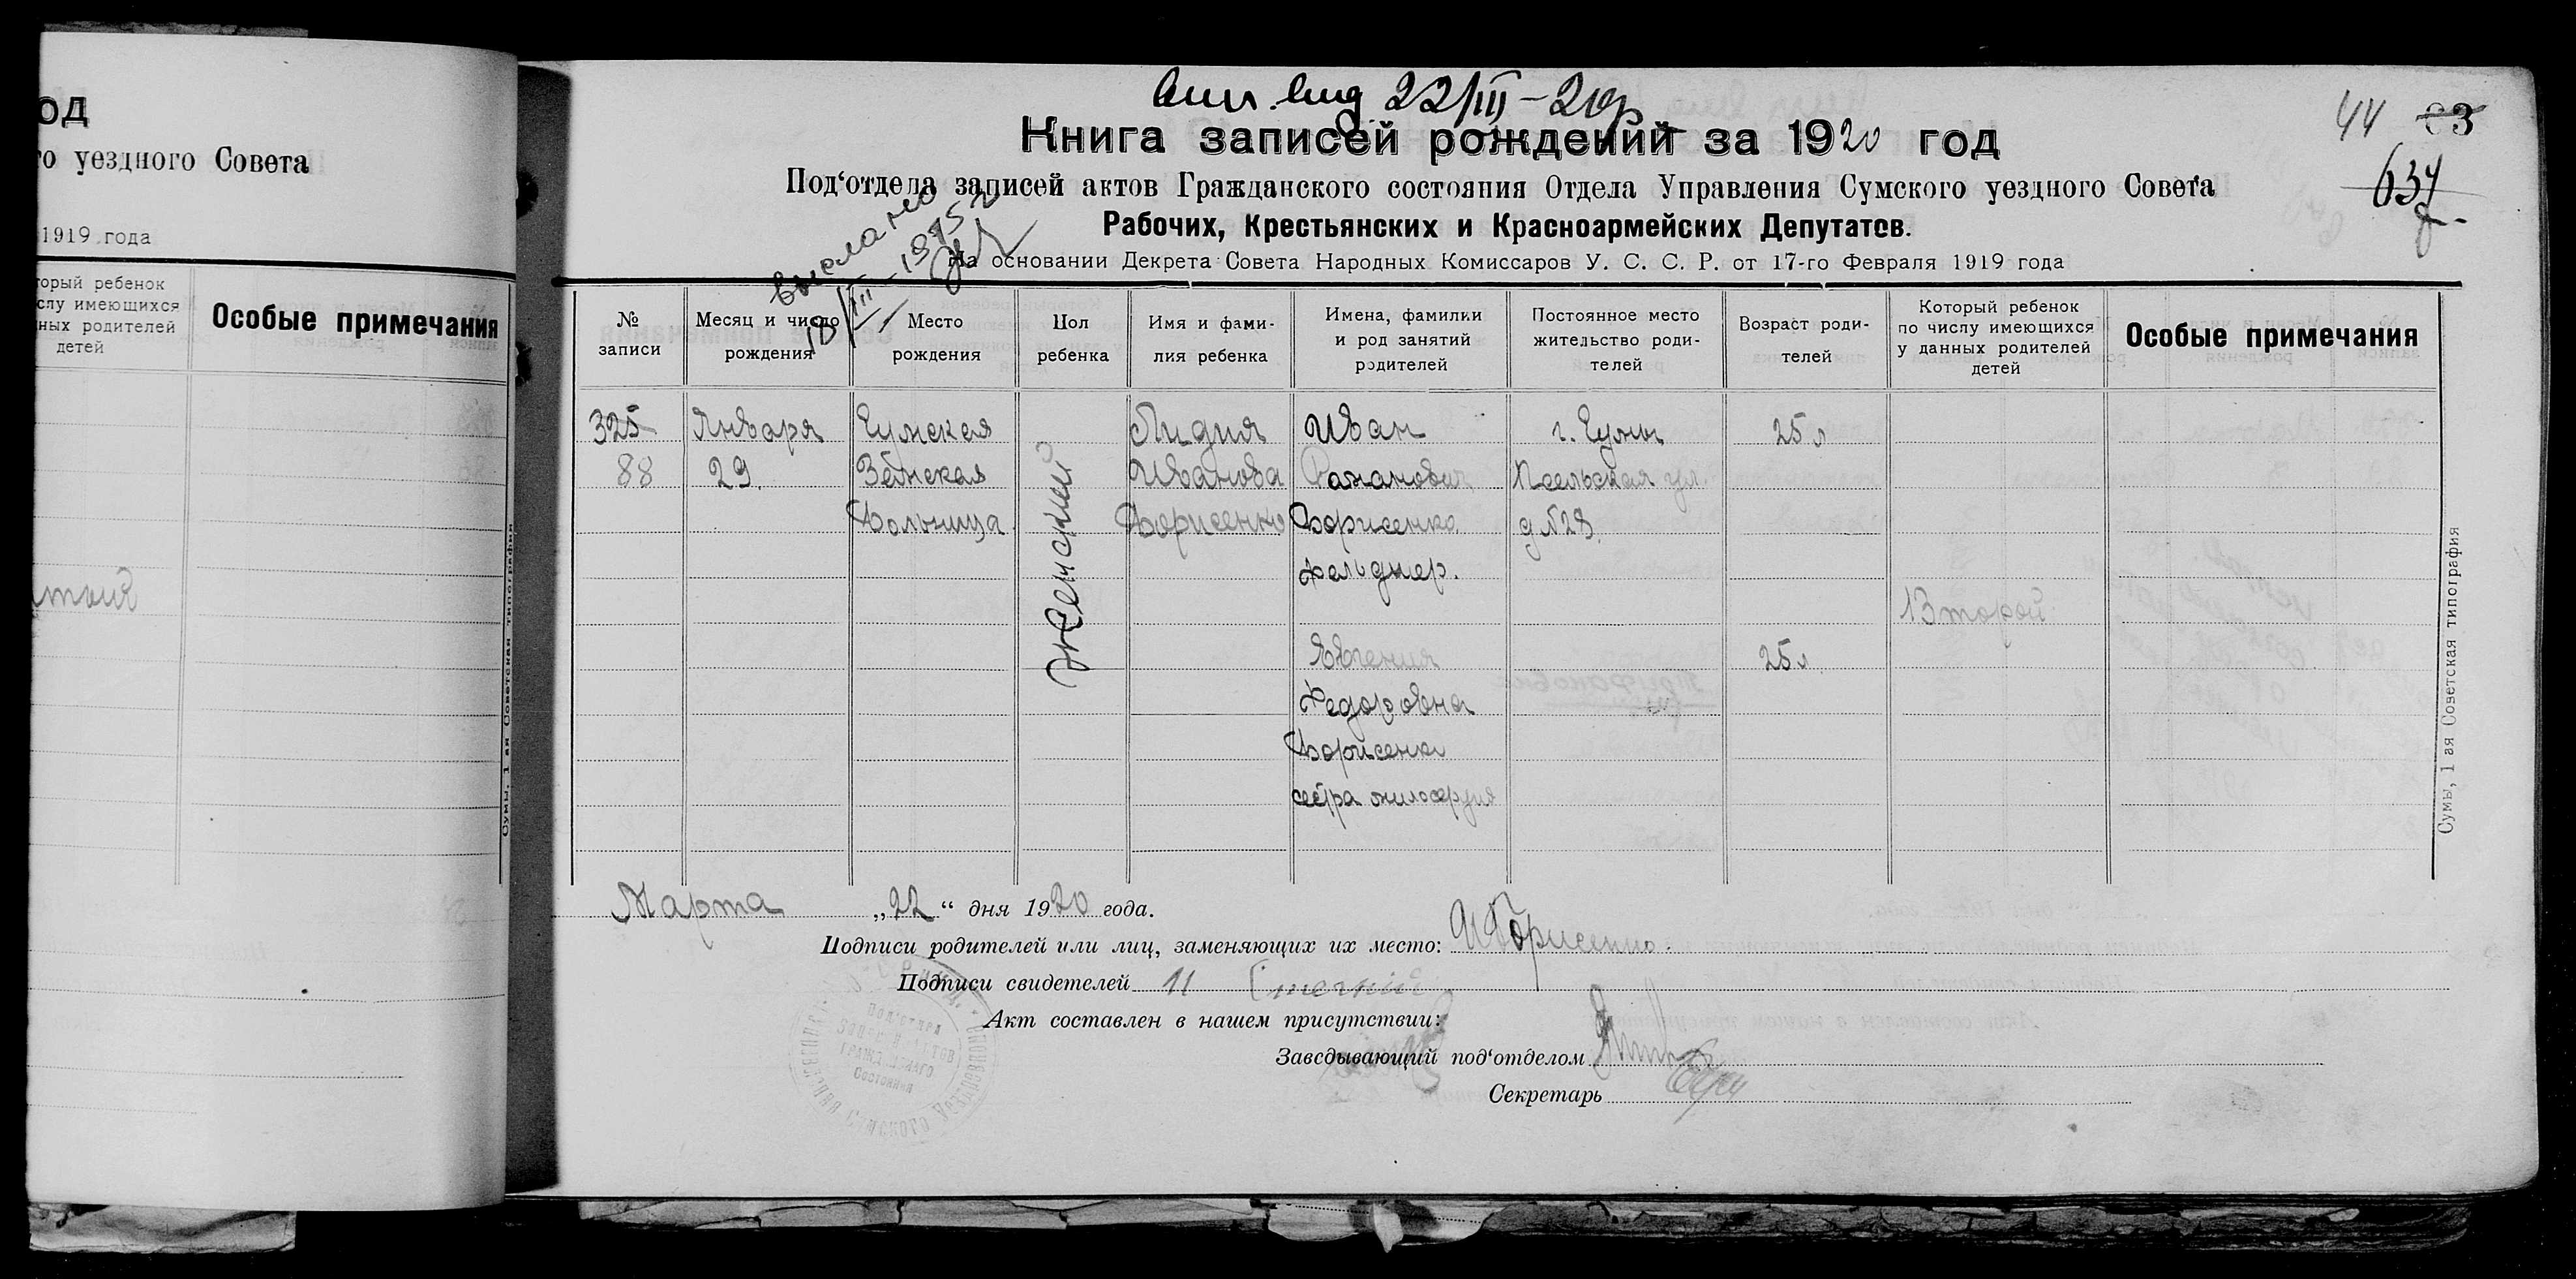 од
го уездного Совета
1919 года
торый ребенок
слу имеющихся
нных родителей
детей
Особые примечания
Сумы, 1 ая Советская типография
22/III - 20 р
44 63
634
Книга записей рождений за 1920 год
Под‘отдела записей актов Гражданского состояния Отдела Управления Сумского уездного Совета
Рабочих, Крестьянских и Красноармейских Депутатов.
На основании Декрета Совета Народных Комиссаров У. С. С. Р. от 17-го Февраля 1919 года
выслано
18/III - 1975 г
№ записи
Месяц и число рождения
Место рождения
Пол ребенка
Имя и фами-
лия ребенка
Имена, фамилии
и род занятий
родителей
Постоянное место
жительство роди-
телей
Возраст роди-
телей
Который ребенок
по числу имеющихся
у данных родителей
детей
Особые примечания
325
88
Января
29.
Сумская
Земская
больница
женский
Лидия
Иванова
Борисенко
Иван
Романович
Борисенко
фельдшер.
Евгения
Федоровна
Борисенко
сестра милосердия
г. Сумы
Псельская ул.
д №28.
25 л
25 л
Второй
Сумы, 1 ая Советская типография
Марта „22“ дня 1920 года.
Подписи родителей или лиц, заменяющих их место: И Борисенко.
Подписи свидетелей И
Акт составлен в нашем присутствии:
Заведывающий под‘отделом
Секретарь
Под‘отдел
Записи актов
Гражданского
Состояния